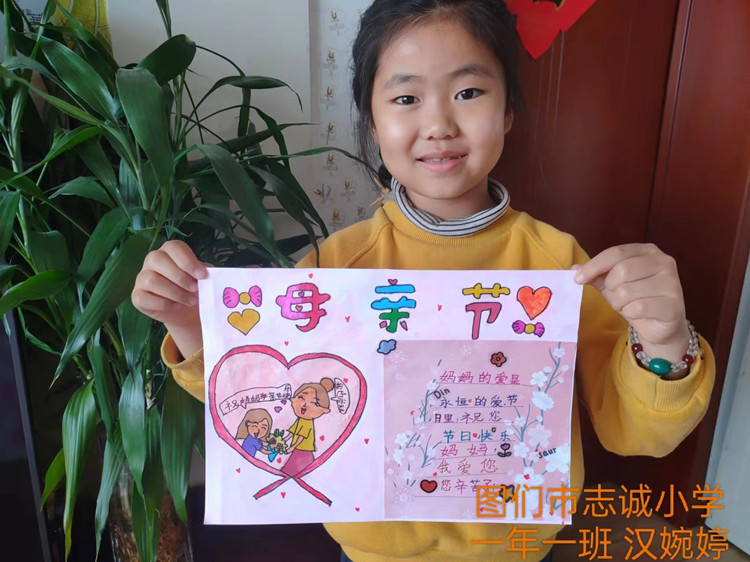 母亲节
妈妈的爱是
永恒的爱节
日里,祝您
节日快乐
妈妈!
我爱您
您辛苦了
Din
saur
图们市志诚小学
一年一班 汉婉婷